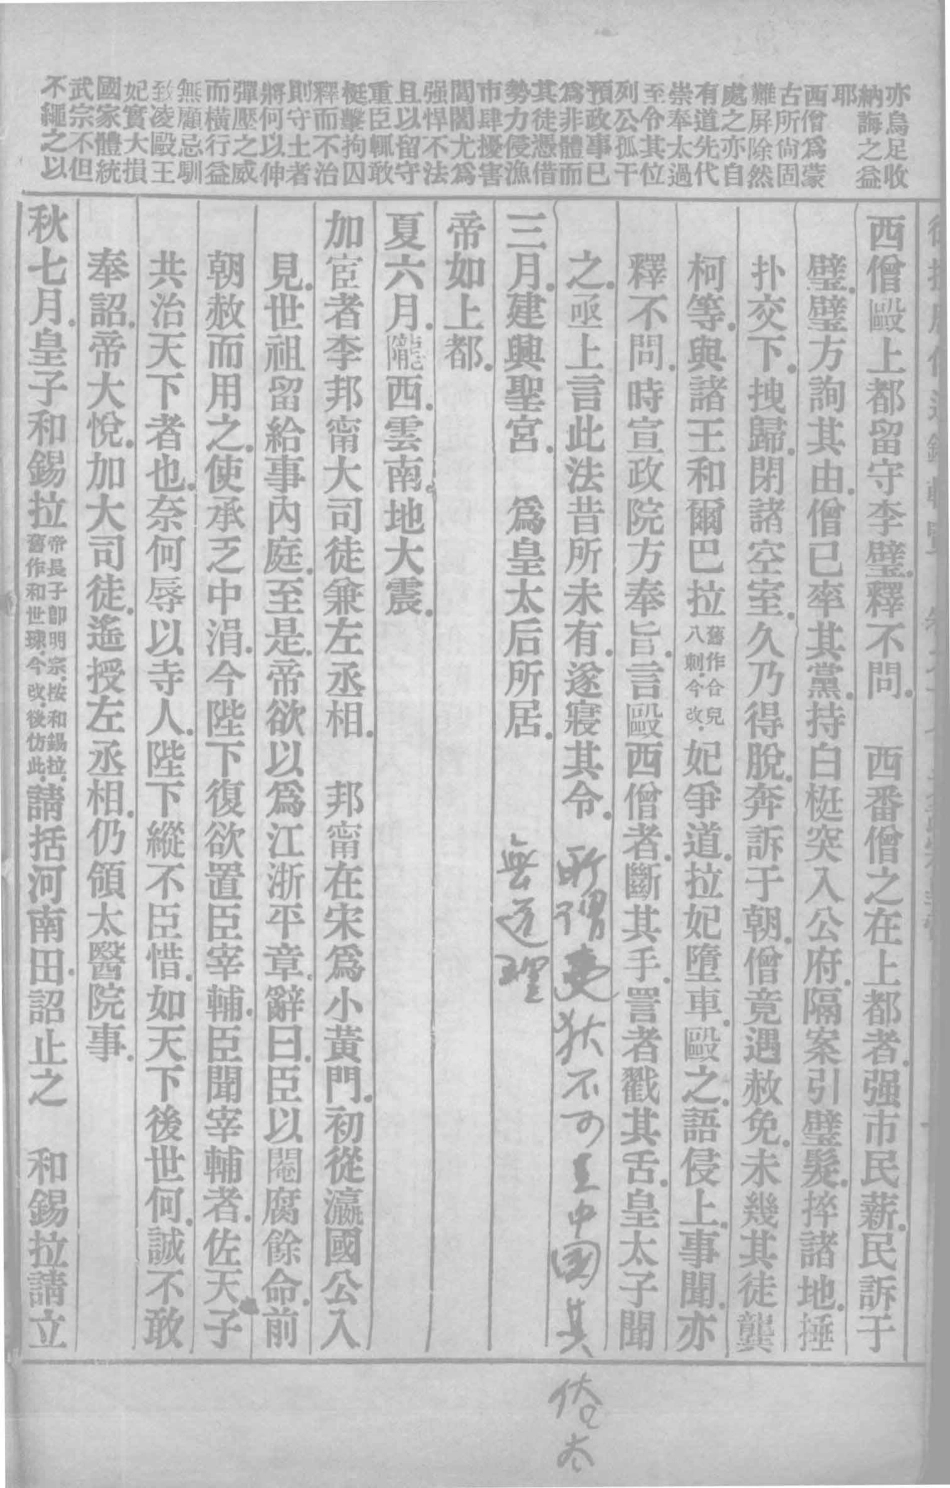 亦烏足收
納誨之益
耶
西僧爲蒙
古所尙固
難屏除然
處之亦自
有道先代
崇奉太過
至令其位
列公孤干
預政事已
爲非體而
其徒憑借
勢力侵漁
市肆擾害
閭閻尤爲
强悍不法
且以留守
重臣輒敢
梃擊拘囚
釋而不治
則守土者
將何以伸
彈壓之威
而橫行益
無顧忌馴
致凌毆王
妃實大損
國家體統
武宗不但
不繩之以
西僧毆上都留守李璧釋不問　西番僧之在上都者强市民薪民訴于
璧璧方詢其由僧已率其黨持白梃突入公府隔案引璧髮捽諸地捶
扑交下拽歸閉諸空室久乃得脫奔訴于朝僧竟遇赦免未幾其徒龔
柯等與諸王和爾巴拉舊作合兒八剌今改妃爭道拉妃墮車毆之語侵上事聞亦
釋不問時宣政院方奉旨言毆西僧者斷其手詈者戳其舌皇太子聞
之亟上言此法昔所未有遂寢其令　所謂夷狄不可主中國其
三月建興聖宮　爲皇太后所居　無道理
帝如上都
夏六月隴西雲南地大震
加宦者李邦甯大司徒兼左丞相　邦甯在宋爲小黃門初從瀛國公入
見世祖留給事內庭至是帝欲以爲江浙平章辭曰臣以閹腐餘命前
朝赦而用之使承乏中涓今陛下復欲置臣宰輔臣聞宰輔者佐天子
共治天下者也奈何辱以寺人陛下縱不臣惜如天下後世何誠不敢
奉詔帝大悅加大司徒遙授左丞相仍領太醫院事
秋七月皇子和錫拉帝長子卽明宗按和錫拉舊作和世㻋今改後仿此請括河南田詔止之　和錫拉請立